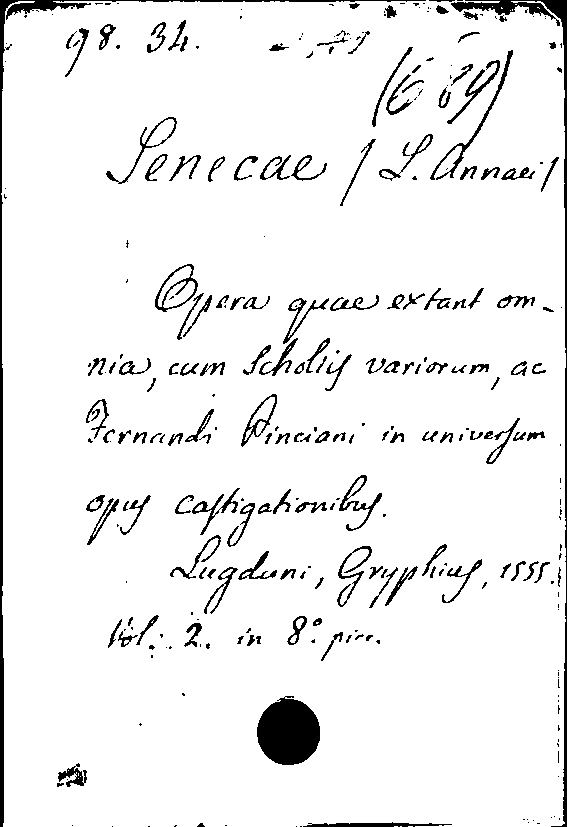 98. 34.
(689)
Senecae / L. Annaei /
Opera quae extant om-
nia, cum Scholiis variorum, ac
Fernandi Pinciani in universum
opus castigationibus.
Lugduni, Gryphius, 1555.
Vol: 2. in 8.°